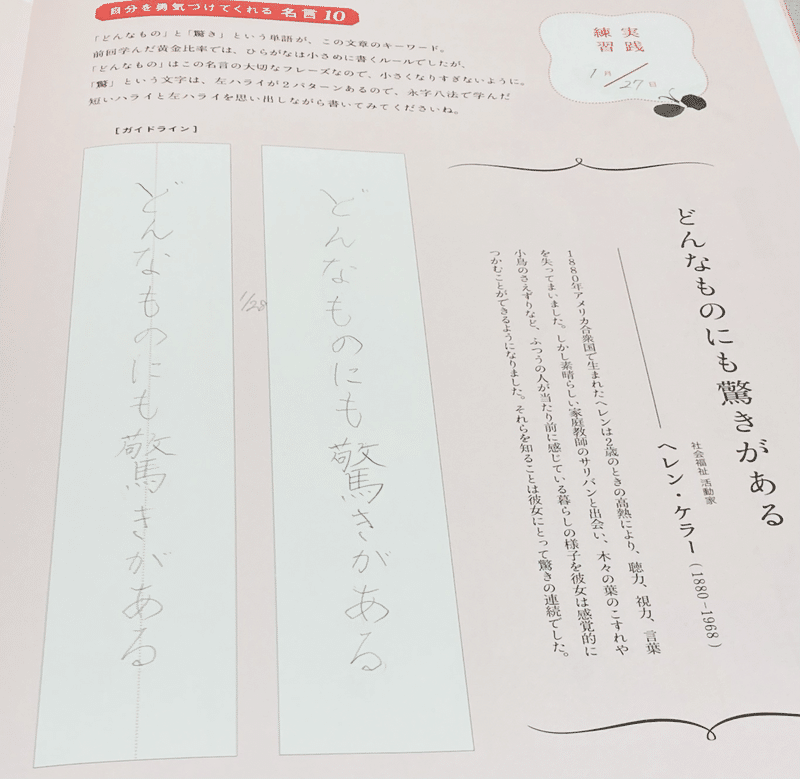 自分を勇気づけてくれる 名言10
「どんなもの」と「驚き」という単語が、この文章のキーワード。
前回学んだ黄金比率では、ひらがなは小さめに書くルールでしたが、
「どんなもの」はこの名言の大切なフレーズなので、小さくなりすぎないように。
「驚」という文字は、左ハライが2パターンあるので、永字八法で学んだ
短いハライと左ハライを思い出しながら書いてみてくださいね。
実践
練習
1月27日
どんなものにも驚きがある
社会福祉活動家
ヘレン・ケラー(1880-1968)
1880年アメリカ合衆国で生まれたヘレンは2歳のときの高熱により、聴力、視力、言葉
を失ってまいました。しかし素晴らしい家庭教師のサリバンと出会い、木々の葉のこすれや
小鳥のさえずりなど、ふつうの人が当たり前に感じている暮らしの様子を彼女は感覚的に
つかむことができるようになりました。それらを知ることは彼女にとって驚きの連続でした。
どんなものにも驚きがある
1/28
[ガイドライン]
どんなものにも驚きがある